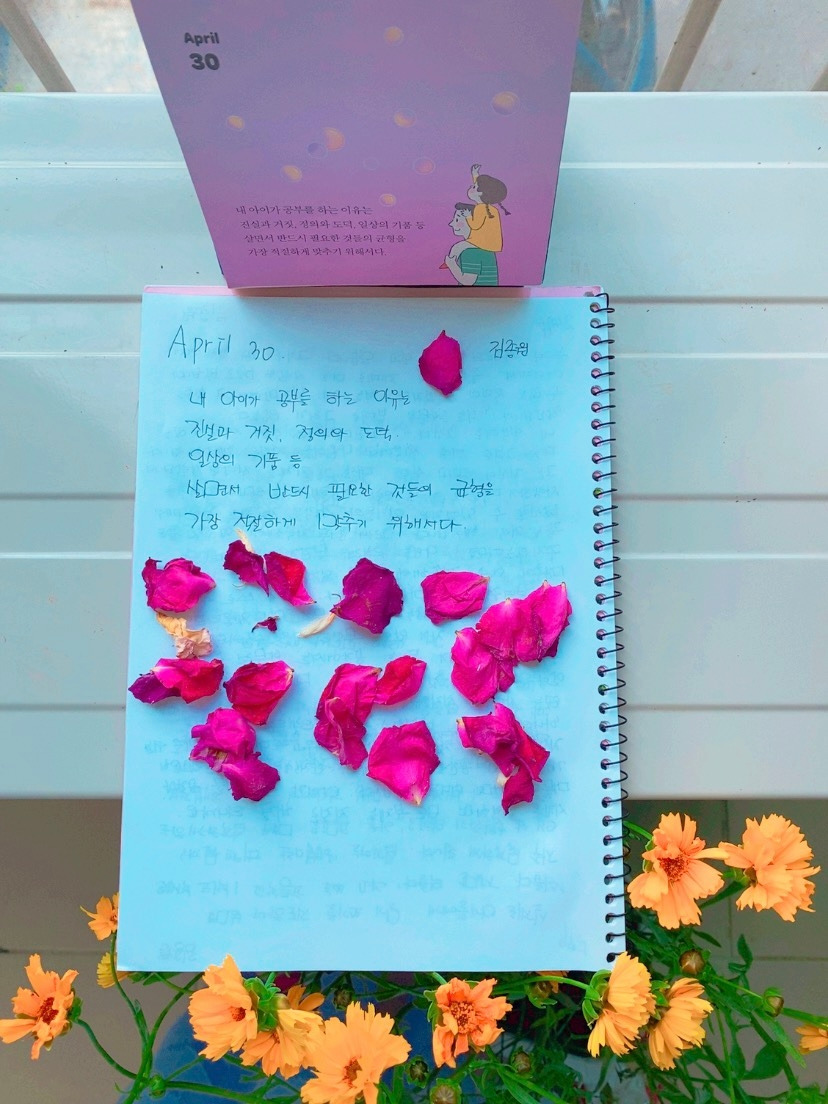 April
30
내 아이가 공부를 하는 이유는
진실과 거짓, 정의와 도덕, 일상의 기품 등
살면서 반드시 필요한 것들의 균형을
가장 적절하게 맞추기 위해서다.
April 30.
김종원
내 아이가 공부를 하는 이유는
진실과 거짓, 정의와 도덕.
일상의 기품 등
살면서 반드시 필요한 것들의 균형을
가장 적절하게 맞추기 위해서다.